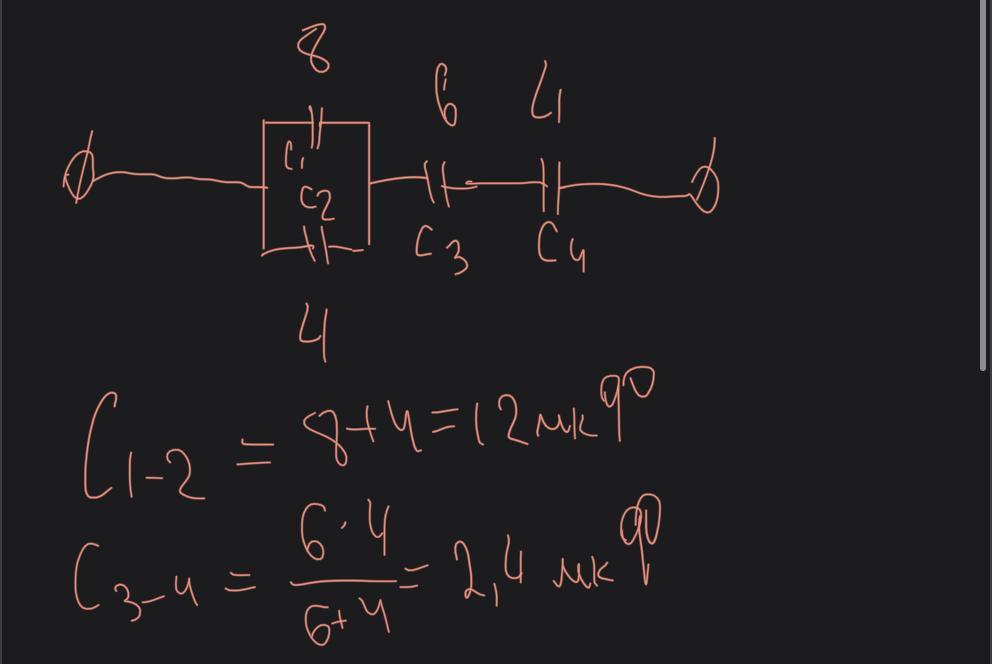 8
6 4
C₁
C₂
C₃ C₄
4
C₁₋₂ = 8+4=12мкФ
C₃₋₄ = 6·4/6+4 = 2,4 мкФ